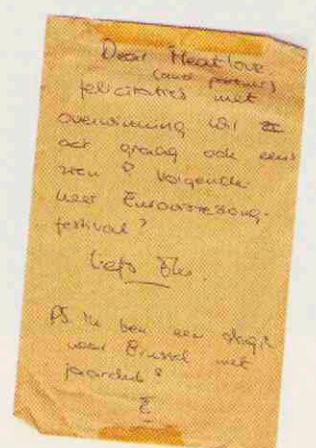 Dear Meatlove
(and partner)
felicitaties met
overwinning wil
act graag ook eens
zien? Volgende
keer Eurovisiesong-
festival?
Liefs
PS Ik ben een dagje
naar Brussel met